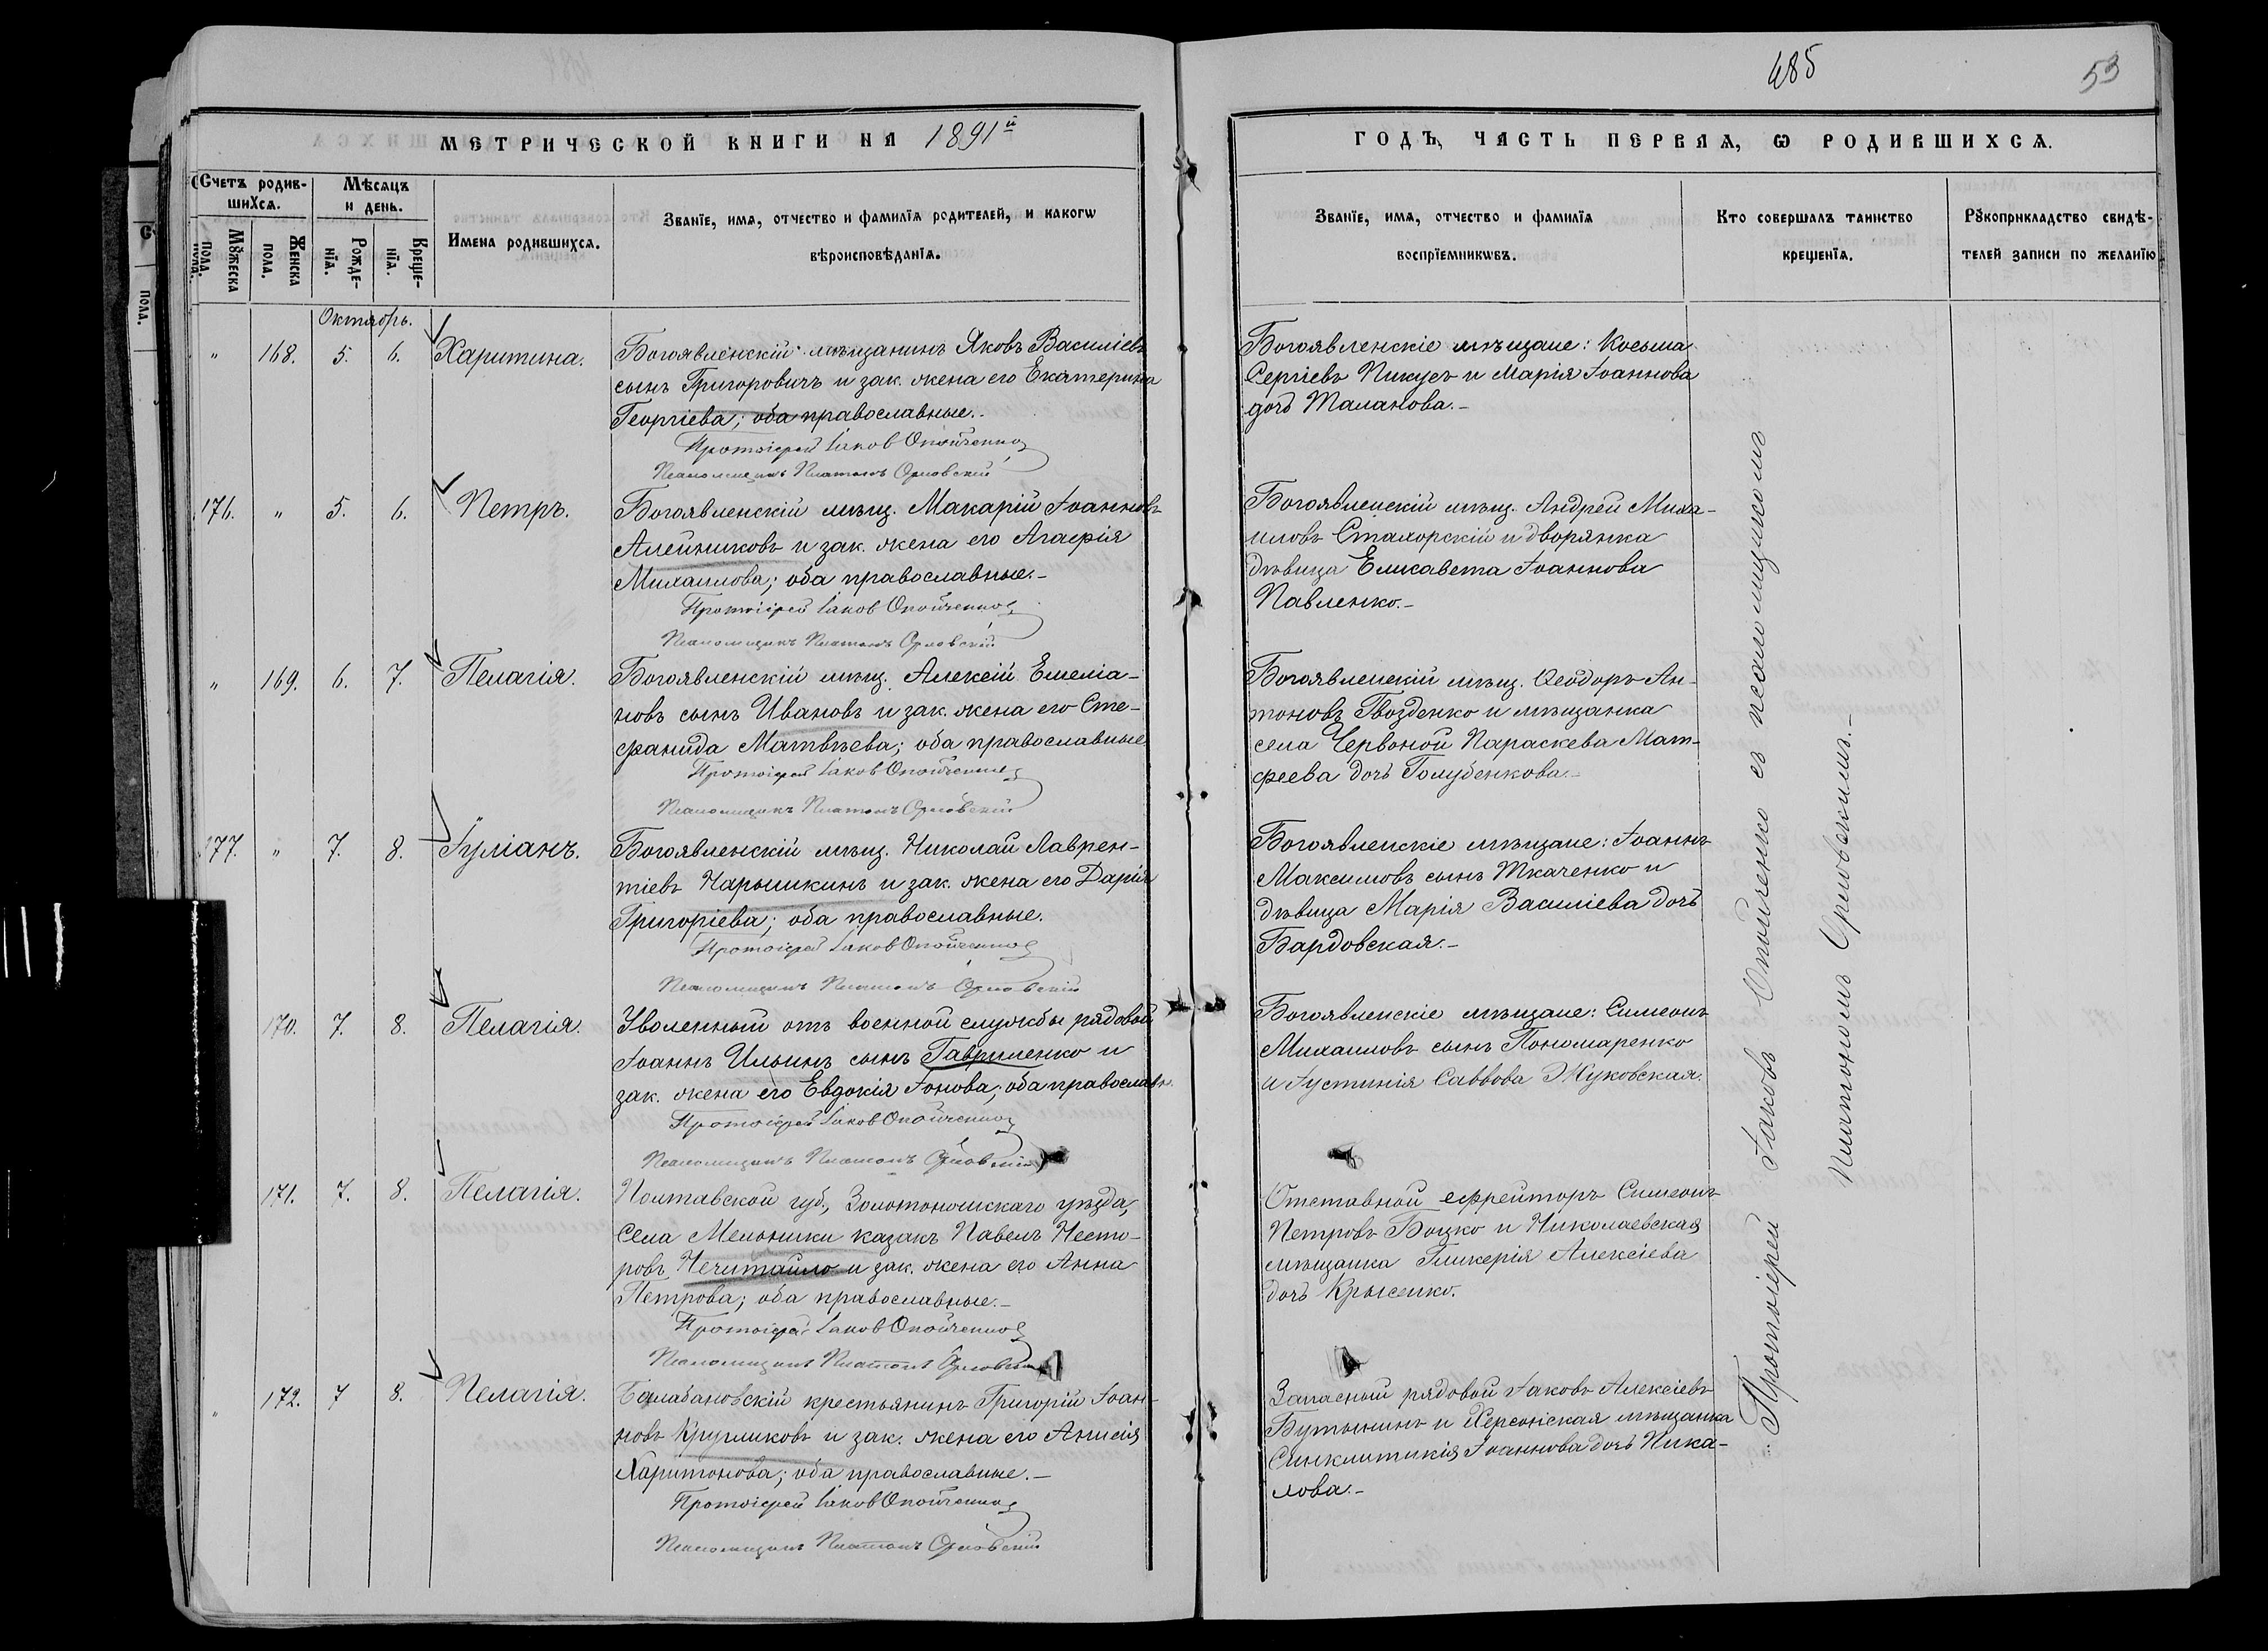 485
53
МЕТРИЧЕСКОЙ КНИГИ НА 1891й
ГОДЪ, ЧАСТЬ ПЕРВАЯ, Ѡ РОДИВШИХСЯ.
Счетъ родив-
шихся.
Мѣсяцъ
и день.
Мꙋжеска
пола.
Женска
пола.
Рожде-
нїя.
Креще-
нїя.
Имена родившихся.
Званїе, имя, отчество и фамилїя родителей, и какогѡ
вѣроисповѣданїя.
Званїе, имя, отчество и фамилїя
воспрїемникѡвъ.
Кто совершалъ таинство
крещенїя.
Рꙋкоприкладство свидѣ-
телей записи по желанїю
Октябрь.
" 168. 5. 6. Харитина.
Богоявленскій мѣщанинъ Яковъ Василіевъ
сынъ Григоровичъ и зак. жена его Екатерина
Георгіева; оба православные.-
Протоіерей Іаков Опойченко
Псаломщикъ Платонъ Орловскій
Богоявленскіе мѣщане: Косьма
Сергіевъ Пикусъ и Марія Іоаннова
дочь Таланова.-
176. " 5. 6. Петръ.
Богоявленскій мѣщ. Макарій Іоанновъ
Алейниковъ и зак. жена его Агафія
Михаилова; оба православные.-
Протоіерей Іаков Опойченко
Псаломщикъ Платонъ Орловскій
Богоявленскій мѣщ. Андрей Миха-
иловъ Стаморскій и дворянка
дѣвица Елисавета Іоаннова
Павленко.-
" 169. 6. 7. Пелагія.
Богоявленскій мѣщ. Алексій Емеліа-
новъ сынъ Ивановъ и зак. жена его Сте-
фанида Матвѣева; оба православные.
Протоіерей Іаков Опойченко
Псаломщикъ Платонъ Орловскій
Богоявленскій мѣщ. Ѳеодоръ Ан-
тоновъ Гвозденко и мѣщанка
села Червоной Параскева Мат-
феева дочь Голубенкова.-
177. " 7. 8. Іуліанъ.
Богоявленскій мѣщ. Николай Лаврен-
тіевъ Нарышкинъ и зак. жена его Дарія
Григоріева; оба православные.
Протоіерей Іаков Опойченко
Псаломщикъ Платонъ Орловскій
Богоявленскіе мѣщане: Іоаннъ
Максимовъ сынъ Ткаченко и
дѣвица Марія Василіева дочь
Бардовская.-
170. 7. 8. Пелагія.
Уволенный отъ военной службы рядовой
Іоаннъ Ильинъ сынъ Гавриленко и
зак. жена его Евдокія Іонова; оба православн.
Протоіерей Іаков Опойченко
Псаломщикъ Платонъ Орловскій
Богоявленскіе мѣщане: Симеонъ
Михаиловъ сынъ Пономаренко
и Іустинія Саввова Жуковская.
171. 7. 8. Пелагія.
Полтавской губ., Золотоношскаго уѣзда,
села Мельники казакъ Павелъ Несто-
ровъ Нечитайло и зак. жена его Анна
Петрова; оба православные.-
Протоіерей Іаков Опойченко
Псаломщикъ Платонъ Орловскій
Отставной ефрейторъ Симеонъ
Петровъ Боцко и Николаевская
мѣщанка Гликерія Алексіева
дочь Крысенко.
" 172. 7 8. Пелагія.
Балабановскій крестьянинъ Григорій Іоан-
новъ Кругликовъ и зак. жена его Анисія
Харитонова; оба православные.-
Протоіерей Іаков Опойченко
Псаломщикъ Платонъ Орловскій
Запасный рядовой Іаковъ Алексіевъ
Бутынинъ и Херсонская мѣщанка
Синклитикія Іоаннова дочь Пика-
лова.-
Протоіерей Іаковъ Опойченко съ псаломщикомъ
Платономъ Орловскимъ.-